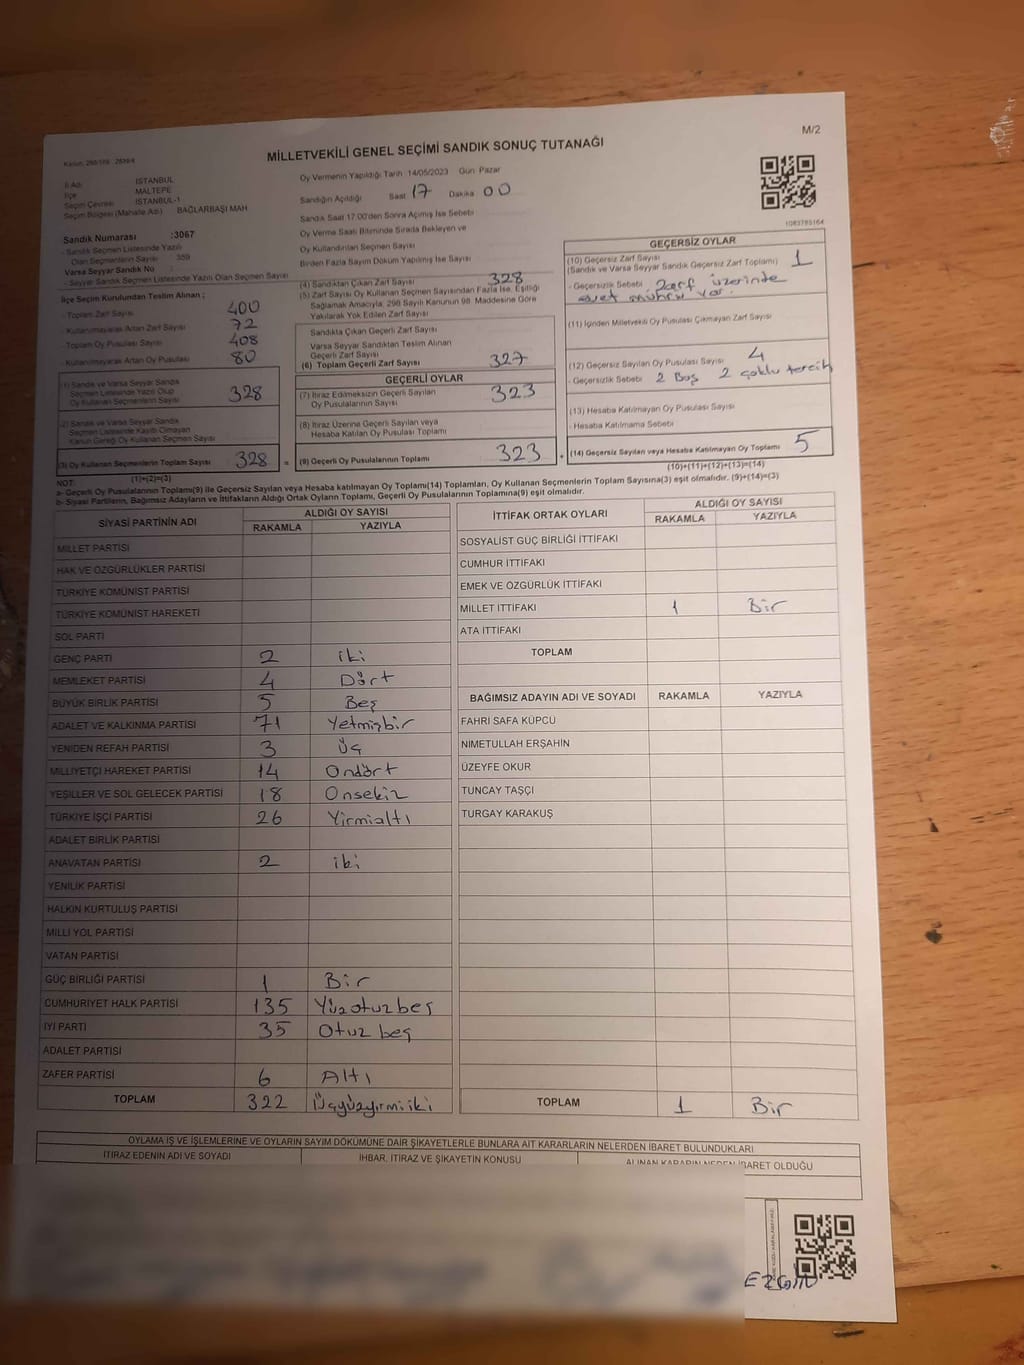 M/2
MİLLETVEKİLİ GENEL SEÇİMİ SANDIK SONUÇ TUTANAĞI
İl Adı : İSTANBUL
İlçe : MALTEPE
Seçim Çevresi : İSTANBUL-1
Seçim Bölgesi (Mahalle Adı) BAĞLARBAŞI MAH
Oy Vermenin Yapıldığı Tarih :14/05/2023 Gün: Pazar
Sandığın Açıldığı Saat 17 Dakika 00
Sandık Saat 17.00'den Sonra Açılmış İse Sebebi
Oy Verme Saati Bitiminde Sırada Bekleyen ve
Oy Kullandırılan Seçmen Sayısı
Birden Fazla Sayım Döküm Yapılmış İse Sayısı
1083785164
Sandık Numarası :3067
- Sandık Seçmen Listesinde Yazılı
Olan Seçmenlerin Sayısı : 359
Varsa Seyyar Sandık No :
- Seyyar Sandık Seçmen Listesinde Yazılı Olan Seçmen Sayısı
İlçe Seçim Kurulundan Teslim Alınan ;
- Toplam Zarf Sayısı 400
- Kullanılmayarak Artan Zarf Sayısı 72
- Toplam Oy Pusulası Sayısı 408
- Kullanılmayarak Artan Oy Pusulası 80
(1) Sandık ve Varsa Seyyar Sandık
Seçmen Listesinde Yazılı Olup
Oy Kullanan Seçmenlerin Sayısı 328
(2) Sandık ve Varsa Seyyar Sandık
Seçmen Listesinde Kayıtlı Olmayan
Kanun Gereği Oy Kullanan Seçmen Sayısı
(3) Oy Kullanan Seçmenlerin Toplam Sayısı 328 =
(1)+(2)=(3)
(4) Sandıktan Çıkan Zarf Sayısı 328
(5) Zarf Sayısı Oy Kullanan Seçmen Sayısından Fazla İse, Eşitliği
Sağlamak Amacıyla, 298 Sayılı Kanunun 98. Maddesine Göre
Yakılarak Yok Edilen Zarf Sayısı
Sandıkta Çıkan Geçerli Zarf Sayısı
Varsa Seyyar Sandıktan Teslim Alınan
Geçerli Zarf Sayısı
(6) Toplam Geçerli Zarf Sayısı 327
GEÇERLİ OYLAR
(7) İtiraz Edilmeksizin Geçerli Sayılan
Oy Pusulalarının Sayısı 323
(8) İtiraz Üzerine Geçerli Sayılan veya
Hesaba Katılan Oy Pusulası Toplamı
(9) Geçerli Oy Pusulalarının Toplamı 323 +
GEÇERSİZ OYLAR
(10) Geçersiz Zarf Sayısı 1
(Sandık ve Varsa Seyyar Sandık Geçersiz Zarf Toplamı)
- Geçersizlik Sebebi : Zarf üzerinde
evet mührü var.
(11) İçinden Milletvekili Oy Pusulası Çıkmayan Zarf Sayısı
(12) Geçersiz Sayılan Oy Pusulası Sayısı 4
- Geçersizlik Sebebi : 2 Boş 2 çoklu tercih
(13) Hesaba Katılmayan Oy Pusulası Sayısı
- Hesaba Katılmama Sebebi
(14) Geçersiz Sayılan veya Hesaba Katılmayan Oy Toplamı 5
(10)+(11)+(12)+(13)=(14)
NOT:
a- Geçerli Oy Pusulalarının Toplamı(9) ile Geçersiz Sayılan veya Hesaba katılmayan Oy Toplamı(14) Toplamları, Oy Kullanan Seçmenlerin Toplam Sayısına(3) eşit olmalıdır. (9)+(14)=(3)
b- Siyasi Partilerin, Bağımsız Adayların ve İttifakların Aldığı Ortak Oyların Toplamı, Geçerli Oy Pusulalarının Toplamına(9) eşit olmalıdır.
SİYASİ PARTİNİN ADI ALDIĞI OY SAYISI
RAKAMLA YAZIYLA
MİLLET PARTİSİ
HAK VE ÖZGÜRLÜKLER PARTİSİ
TÜRKİYE KOMÜNİST PARTİSİ
TÜRKİYE KOMÜNİST HAREKETİ
SOL PARTİ
GENÇ PARTİ 2 iki
MEMLEKET PARTİSİ 4 Dört
BÜYÜK BİRLİK PARTİSİ 5 Beş
ADALET VE KALKINMA PARTİSİ 71 Yetmişbir
YENİDEN REFAH PARTİSİ 3 Üç
MİLLİYETÇİ HAREKET PARTİSİ 14 Ondört
YEŞİLLER VE SOL GELECEK PARTİSİ 18 Onsekiz
TÜRKİYE İŞÇİ PARTİSİ 26 Yirmialtı
ADALET BİRLİK PARTİSİ
ANAVATAN PARTİSİ 2 iki
YENİLİK PARTİSİ
HALKIN KURTULUŞ PARTİSİ
MİLLİ YOL PARTİSİ
VATAN PARTİSİ
GÜÇ BİRLİĞİ PARTİSİ 1 Bir
CUMHURİYET HALK PARTİSİ 135 Yüzotuzbeş
İYİ PARTİ 35 Otuz beş
ADALET PARTİSİ
ZAFER PARTİSİ 6 Altı
TOPLAM 322 Üçyüzyirmiiki
İTTİFAK ORTAK OYLARI ALDIĞI OY SAYISI
RAKAMLA YAZIYLA
SOSYALİST GÜÇ BİRLİĞİ İTTİFAKI
CUMHUR İTTİFAKI
EMEK VE ÖZGÜRLÜK İTTİFAKI
MİLLET İTTİFAKI 1 Bir
ATA İTTİFAKI
TOPLAM
BAĞIMSIZ ADAYIN ADI VE SOYADI RAKAMLA YAZIYLA
FAHRİ SAFA KÜPCÜ
NİMETULLAH ERŞAHİN
ÜZEYFE OKUR
TUNCAY TAŞÇI
TURGAY KARAKUŞ
TOPLAM 1 Bir
OYLAMA İŞ VE İŞLEMLERİNE VE OYLARIN SAYIM DÖKÜMÜNE DAİR ŞİKAYETLERLE BUNLARA AİT KARARLARIN NELERDEN İBARET BULUNDUKLARI
İTİRAZ EDENİN ADI VE SOYADI İHBAR, İTİRAZ VE ŞİKAYETİN KONUSU ALINAN KARARIN NEDEN İBARET OLDUĞU